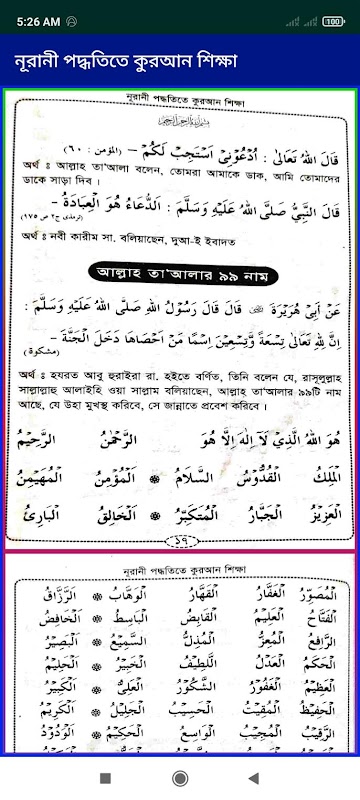 5:26 AM
100
নূরানী পদ্ধতিতে কুরআন শিক্ষা
নূরানী পদ্ধতিতে কুরআন শিক্ষা
قَالَ اللهُ تَعَالٰى : اُدْعُوْنِىْ اَسْتَجِبْ لَكُمْ – (المؤمن : ٦٠)
অর্থ ঃ আল্লাহ তা'আলা বলেন, তোমরা আমাকে ডাক, আমি তোমাদের
ডাকে সাড়া দিব ।
قَالَ النَّبِيُّ صَلَّى اللهُ عَلَيْهِ وَسَلَّمَ : اَلدُّعَاءُ هُوَ الْعِبَادَةُ –
(ترمذى ج٢ ص ١٧٥)
অর্থ ঃ নবী কারীম সা. বলিয়াছেন, দুআ-ই ইবাদত
আল্লাহ তা'আলার ৯৯ নাম
عَنْ اَبِىْ هُرَيْرَةَ قَالَ قَالَ رَسُوْلُ اللهِ صَلَّى اللهُ عَلَيْهِ وَسَلَّمَ :
اِنَّ لِلّٰهِ تَعَالٰى تِسْعَةً وَّتِسْعِيْنَ اِسْمًا مَنْ اَحْصَاهَا دَخَلَ الْجَنَّةَ –
(مشكوة)
অর্থ ঃ হযরত আবু হুরাইরা রা. হইতে বর্ণিত, তিনি বলেন যে, রাসূলুল্লাহ
সাল্লাল্লাহু আলাইহি ওয়া সাল্লাম বলিয়াছেন, আল্লাহ তা'আলার ৯৯টি নাম
আছে, যে উহা মুখস্থ করিবে, সে জান্নাতে প্রবেশ করিবে ।
هُوَ اللهُ الَّذِيْ لَآ اِلٰهَ اِلَّا هُوَ الرَّحْمٰنُ الرَّحِيْمُ
اَلْمَلِكُ الْقُدُّوْسُ السَّلَامُ * الْمُؤْمِنُ الْمُهَيْمِنُ
الْعَزِيْزُ الْجَبَّارُ الْمُتَكَبِّرُ * اَلْخَالِقُ الْبَارِئُ
১৭
নূরানী পদ্ধতিতে কুরআন শিক্ষা
الْمُصَوِّرُ الْغَفَّارُ الْقَهَّارُ الْوَهَّابُ * الرَّزَّاقُ
الْفَتَّاحُ الْعَلِيْمُ الْقَابِضُ الْبَاسِطُ * الْخَافِضُ
الرَّافِعُ الْمُعِزُّ الْمُذِلُّ السَّمِيْعُ * الْبَصِيْرُ
الْحَكَمُ الْعَدْلُ اللَّطِيْفُ الْخَبِيْرُ * الْحَلِيْمُ
الْعَظِيْمُ الْغَفُوْرُ الشَّكُوْرُ الْعَلِىُّ * الْكَبِيْرُ
الْحَفِيْظُ الْمُقِيْتُ الْحَسِيْبُ الْجَلِيْلُ * الْكَرِيْمُ
الرَّقِيْبُ الْمُجِيْبُ الْوَاسِعُ الْحَكِيْمُ * الْوَدُوْدُ